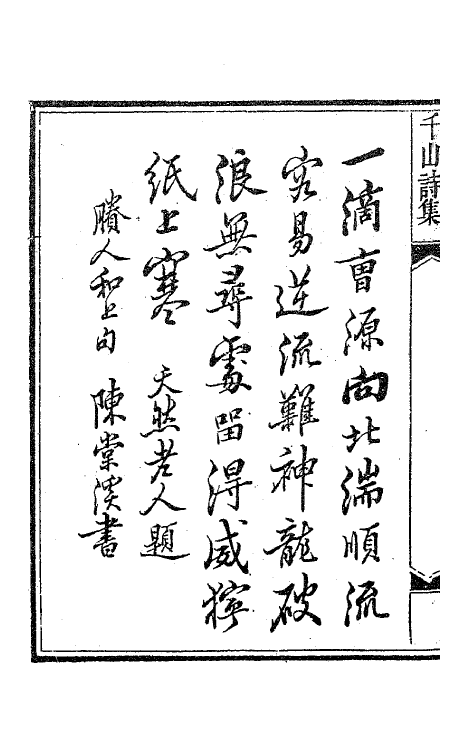 千山詩集
一滴曺源向北湍順流
容易逆流難神龍破
浪無尋處畱得威獰
紙上寒 天然老人題
賸人和上句 陳棠溪書